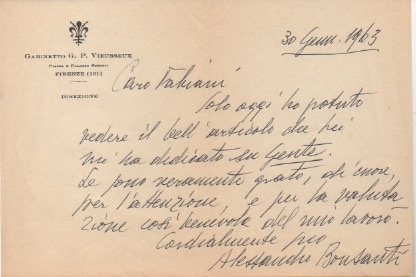 GABINETTO G. P. VIEUSSEUX
PIAZZA E PALAZZO STROZZI
FIRENZE (101)
DIREZIONE
30 Genn. 1963
Caro Fabiani
solo oggi ho potuto
vedere il bell'articolo che Lei
mi ha dedicato su Gente.
Le sono veramente grato, di cuore,
per l'attenzione, e per la valuta
zione così benevola del mio lavoro.
Cordialmente suo
Alessandro Bonsanti